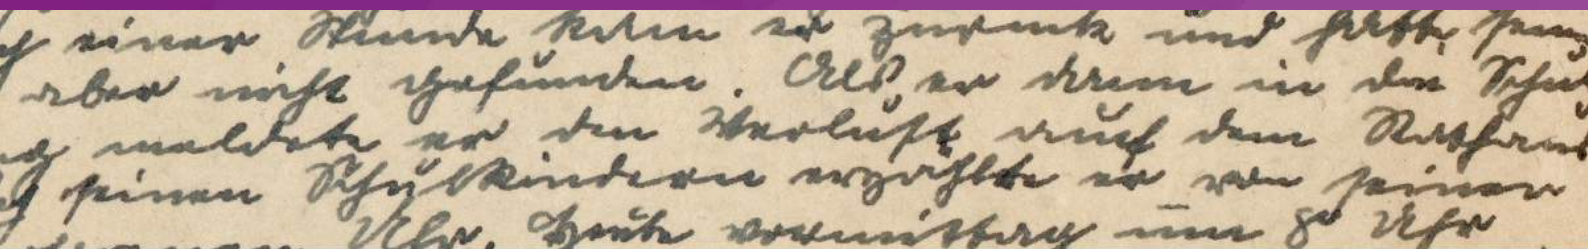 einer Stunde kam er zurück und hatte
aber nicht gefunden. Als er dann in die
meldete er den Verlust auch dem Rathaus
seinen Schulkindern erzählte er von seiner
Uhr. Heute vormittag um 8 Uhr